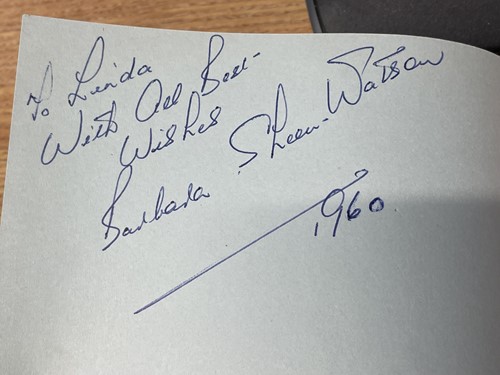 To Linda
With All Best-
Wishes
Barbara Sheen-Watson
1960